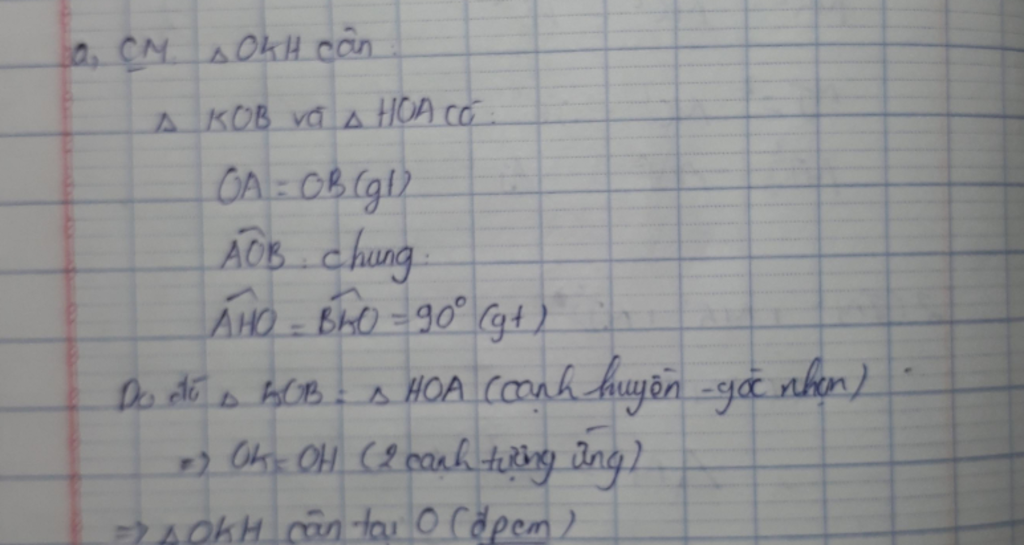 a, CM △OKH cân.
△ KOB và △ HOA có:
OA = OB (gt)
AOB chung.
AHO = BKO = 90° (gt)
Do đó △ KOB = △ HOA (cạnh huyền - góc nhọn)
=> OK = OH (2 cạnh tương ứng)
=> △OKH cân tại O (đpcm)